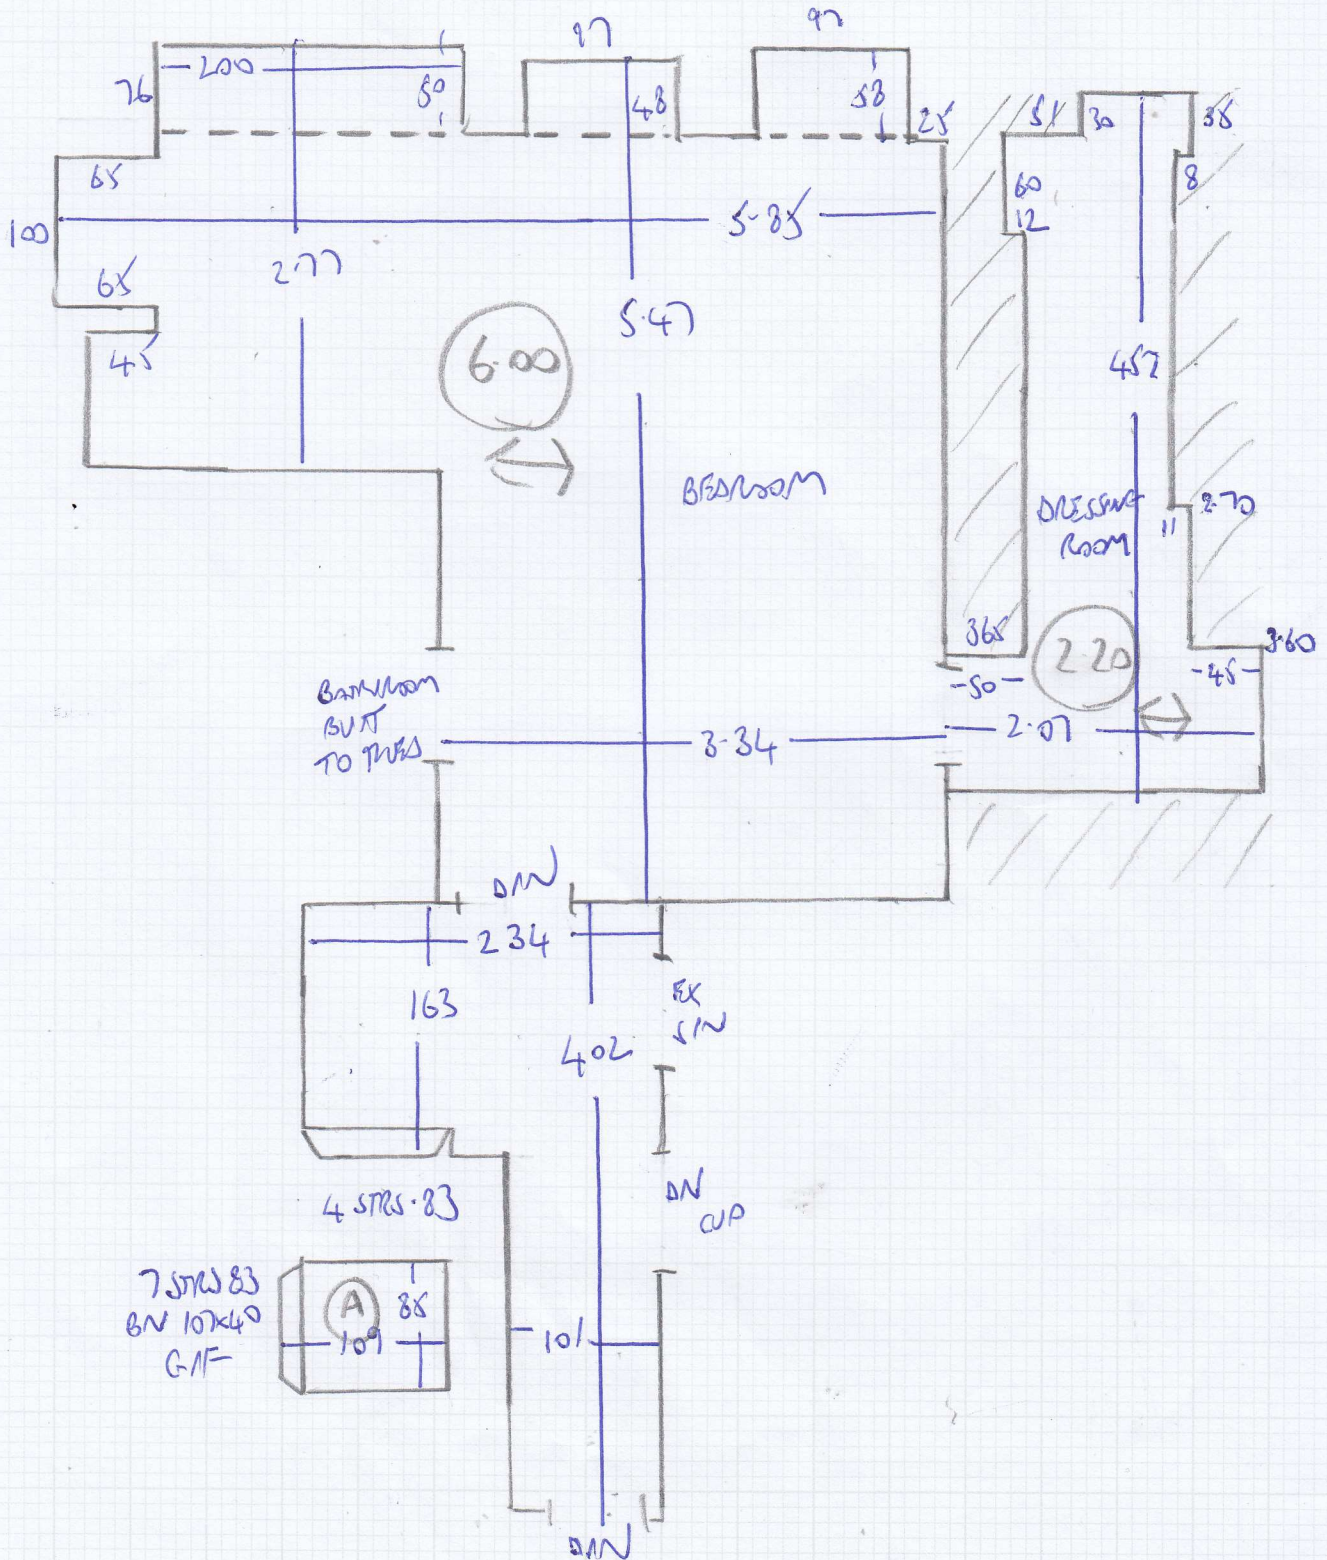 97
97
200
76
50
48
58
25
51
30
35
65
8
60
12
100
5.85
2.77
65
5.47
6.00
45
457
BEDROOM
DRESSING
ROOM
2.70
11
365
2.20
3.60
-50-
-45-
BATHROOM
BUTT
TO TILES
3.34
2.07
D/W
234
163
EX
S/N
402
4 STRS.83
DN
CUP
7 STRS 83
BN 107x40
G/F
A
85
109
101
D/W